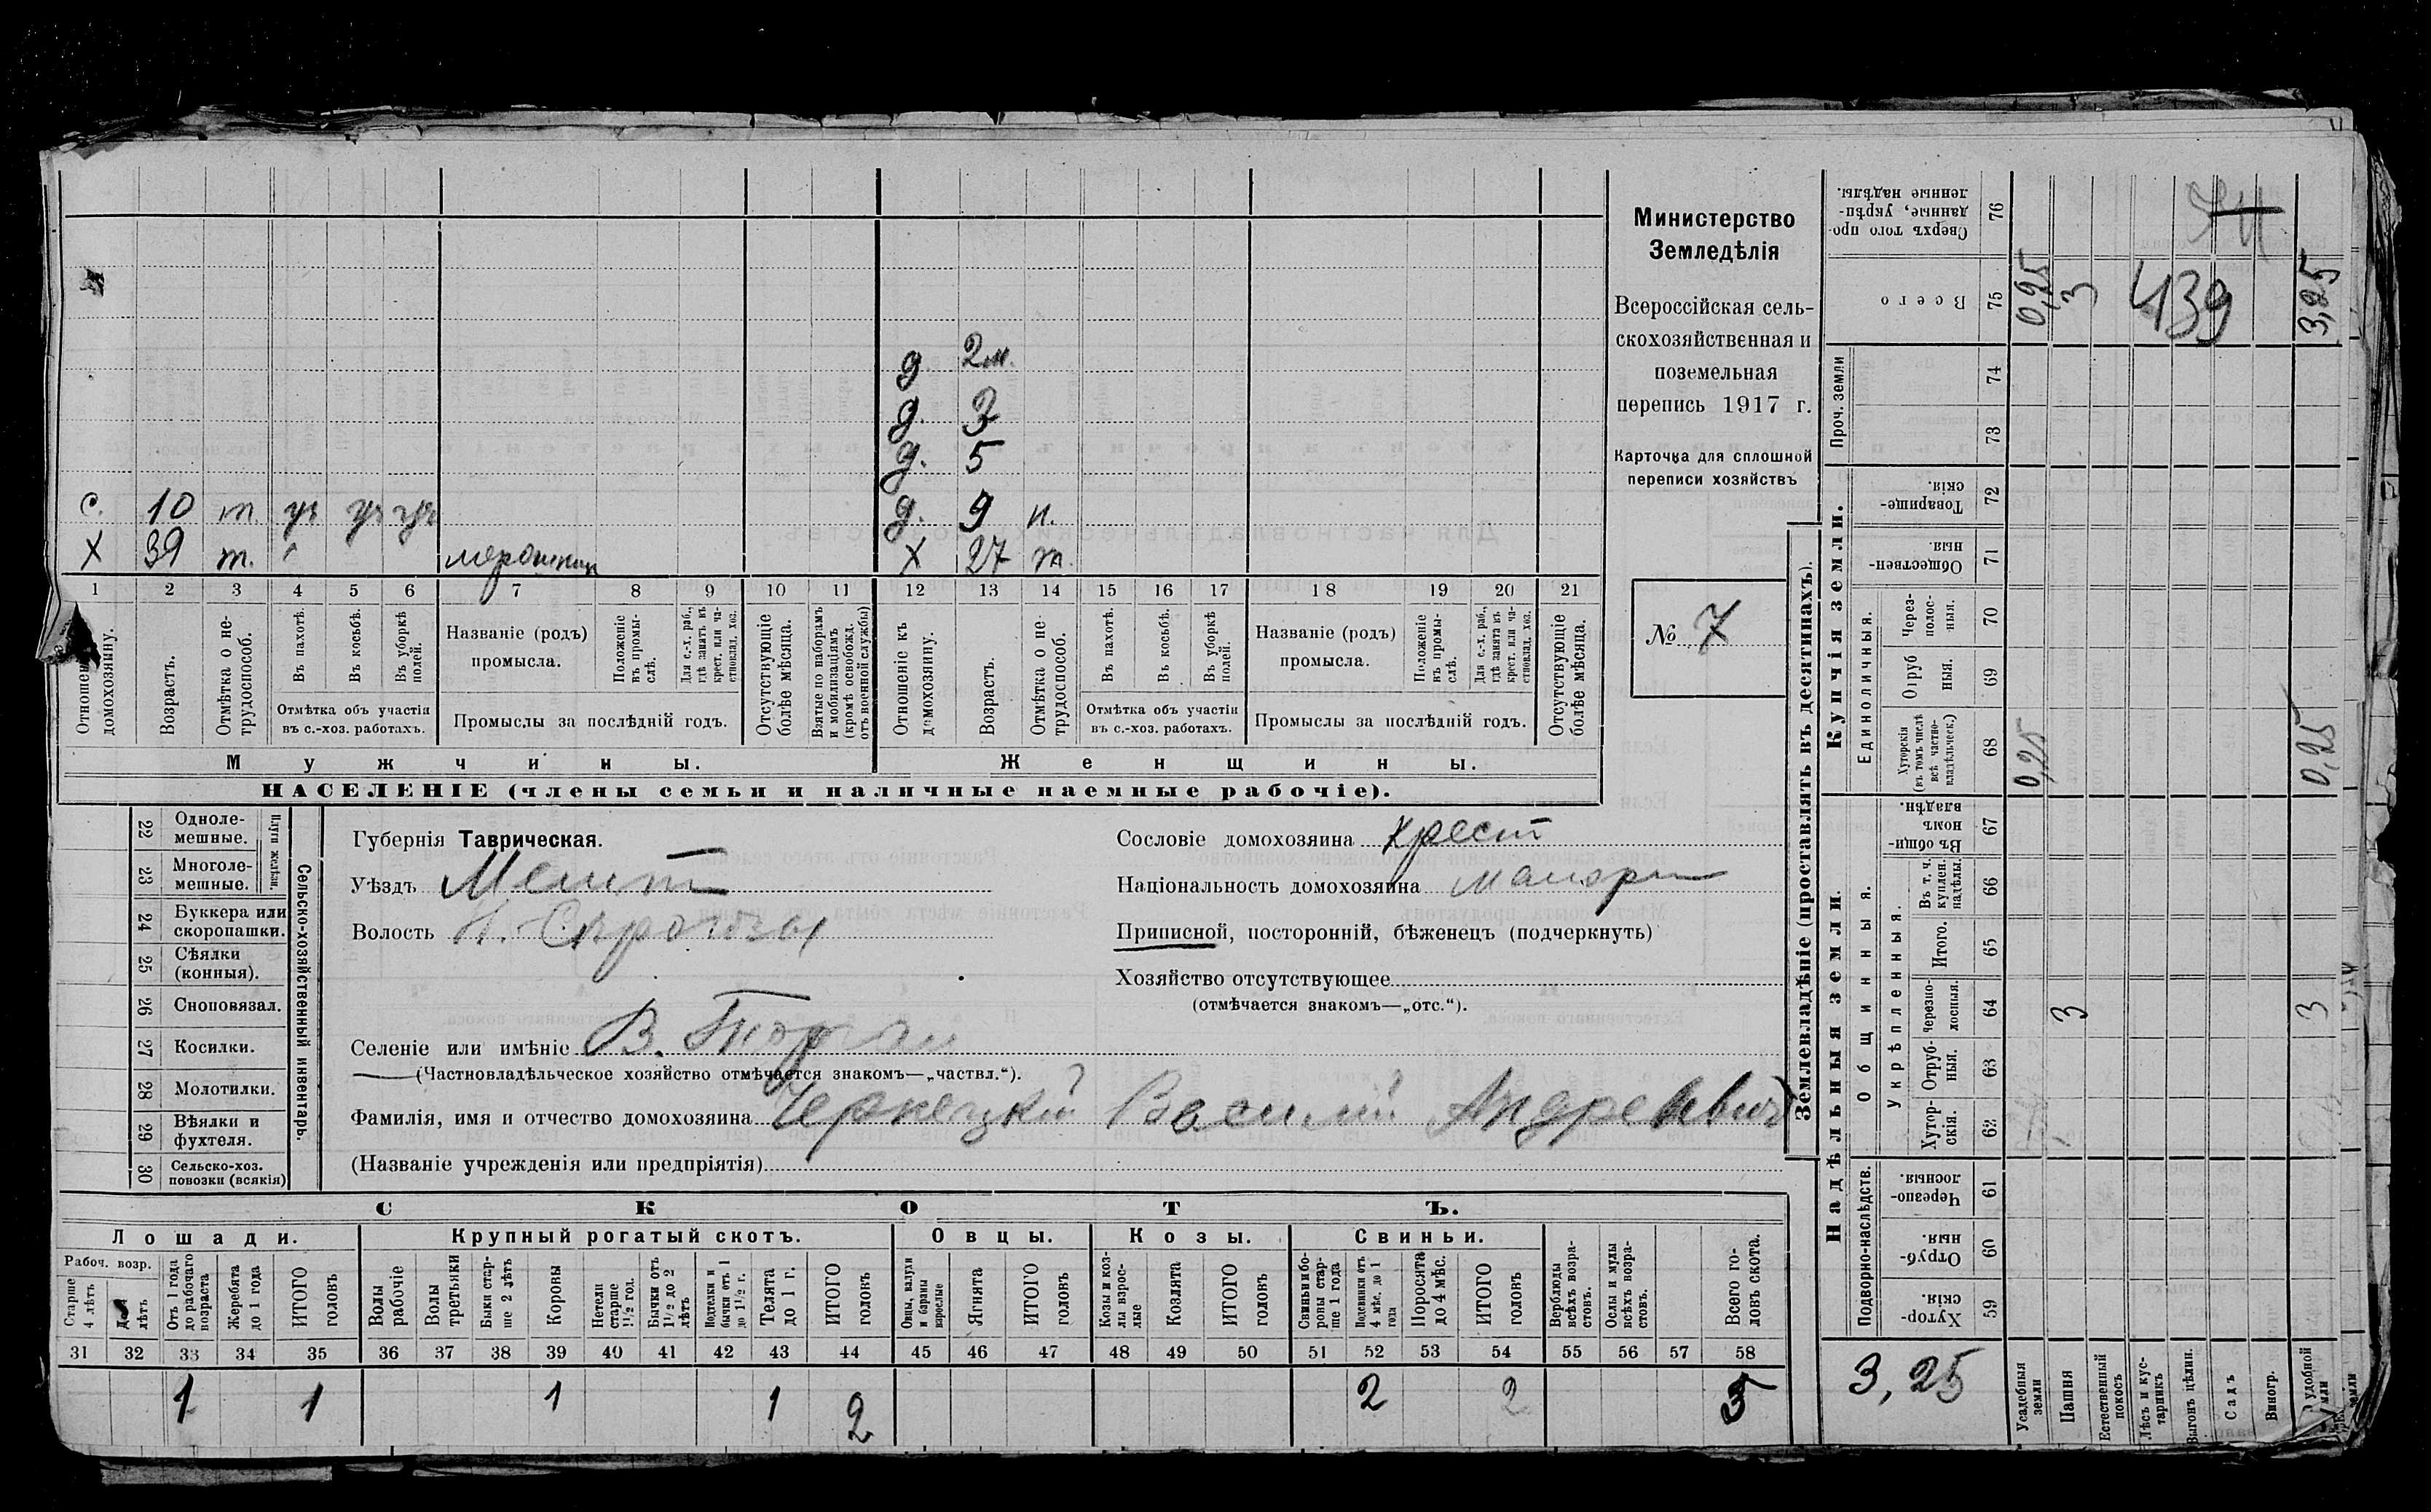 2м.
д.
д. 3
д. 5
с. 10 т ур ур ур д. 9 н.
Х 39 т. Х 27 т.
1 2 3 4 5 6 7 8 9 10 11 12 13 14 15 16 17 18 19 20 21
Отношеніе къ домохозяину.
Возрастъ.
Отмѣтка о нетрудоспособ.
Въ пахотѣ.
Въ косьбѣ.
Въ уборкѣ полей.
Отмѣтка объ участіи въ с.-хоз. работахъ.
Названіе (родъ) промысла.
Положеніе въ промыслѣ.
Для с.-х. раб., гдѣ занятъ въ крест. или частновлад. хоз.
Промыслы за послѣдній годъ.
Отсутствующіе болѣе мѣсяца.
Взятые по наборамъ и мобилизаціямъ (кромѣ освобожд. отъ военной службы)
Отношеніе къ домохозяину.
Возрастъ.
Отмѣтка о нетрудоспособ.
Въ пахотѣ.
Въ косьбѣ.
Въ уборкѣ полей.
Отмѣтка объ участіи въ с.-хоз. работахъ.
Названіе (родъ) промысла.
Положеніе въ промыслѣ.
Для с.-х. раб., гдѣ занятъ въ крест. или частновлад. хоз.
Промыслы за послѣдній годъ.
Отсутствующіе болѣе мѣсяца.
Мужчины. Женщины.
НАСЕЛЕНІЕ (члены семьи и наличные наемные рабочіе).
Министерство
Земледѣлія
Всероссійская сель-
скохозяйственная и
поземельная
перепись 1917 г.
Карточка для сплошной
переписи хозяйствъ
№ 7
22 Одноле-мешные.
23 Многоле-мешные.
Плуги желѣзн.
24 Буккера или скоропашки.
25 Сѣялки (конныя).
26 Сноповязал.
27 Косилки.
28 Молотилки.
29 Вѣялки и фухтеля.
30 Сельско-хоз. повозки (всякія)
Сельско-хозяйственный инвентарь.
Губернія Таврическая.
Уѣздъ Мелит
Волость Н. Сѣрогозы
Селеніе или имѣніе В. Торгаи
(Частновладѣльческое хозяйство отмѣчается знакомъ—„частвл.“).
Фамилія, имя и отчество домохозяина Черкецкій Василій Андреевич
(Названіе учрежденія или предпріятія)
Сословіе домохозяина Крест
Національность домохозяина малорос
Приписной, посторонній, бѣженецъ (подчеркнуть)
Хозяйство отсутствующее
(отмѣчается знакомъ—„отс.“).
СКОТЪ.
Лошади. Крупный рогатый скотъ. Овцы. Козы. Свиньи.
Рабоч. возр.
Старше 4 лѣтъ
лѣтъ
Отъ 1 года до рабочаго возраста
Жеребята до 1 года
ИТОГО головъ
Волы рабочіе
Волы третьяки
Быки старше 2 лѣтъ
Коровы
Нетели старше 1½ год.
Бычки отъ 1½ до 2 лѣтъ
Подтелки и бычки отъ 1 до 1½ г.
Телята до 1 г.
ИТОГО головъ
Овцы, валухи и бараны взрослые
Ягнята
ИТОГО головъ
Козы и козлы взрослые
Козлята
ИТОГО головъ
Свиньи и боровы старше 1 года
Подсвинки отъ 4 мѣс. до 1 года
Поросята до 4 мѣс.
ИТОГО головъ
Верблюды всѣхъ возрастовъ.
Ослы и мулы всѣхъ возрастовъ.
Всего головъ скота.
31 32 33 34 35 36 37 38 39 40 41 42 43 44 45 46 47 48 49 50 51 52 53 54 55 56 57 58
1 1 1 1 2 2 2 5
Землевладѣніе (проставлять въ десятинахъ).
Купчія земли.
Надѣльныя земли.
Сверхъ того проданные, укрѣпленные надѣлы. 76
Всего 75 0,25 3 439 3,25
Проч. земли 74
73
Товарищескія. 72
Общественныя. 71
Единоличныя.
Черезполосныя. 70
Отрубныя. 69
Хуторскія (въ томъ числѣ всѣ частновладѣльческ.) 68 0,25 0,25
Общинныя.
Въ общинномъ владѣн. 67
Укрѣпленныя.
Въ т. ч. куплен. надѣлы. 66
Итого. 65
Черезполосныя. 64 3 3
Отрубныя. 63
Хуторскія. 62
Подворно-наслѣдств.
Черезполосныя. 61
Отрубныя. 60
Хуторскія. 59
3,25
Усадебныя земли
Пашня
Естественный покосъ
Лѣсъ и кустарникъ
Выгонъ цѣлин.
Садъ
Виногр.
удобной земли